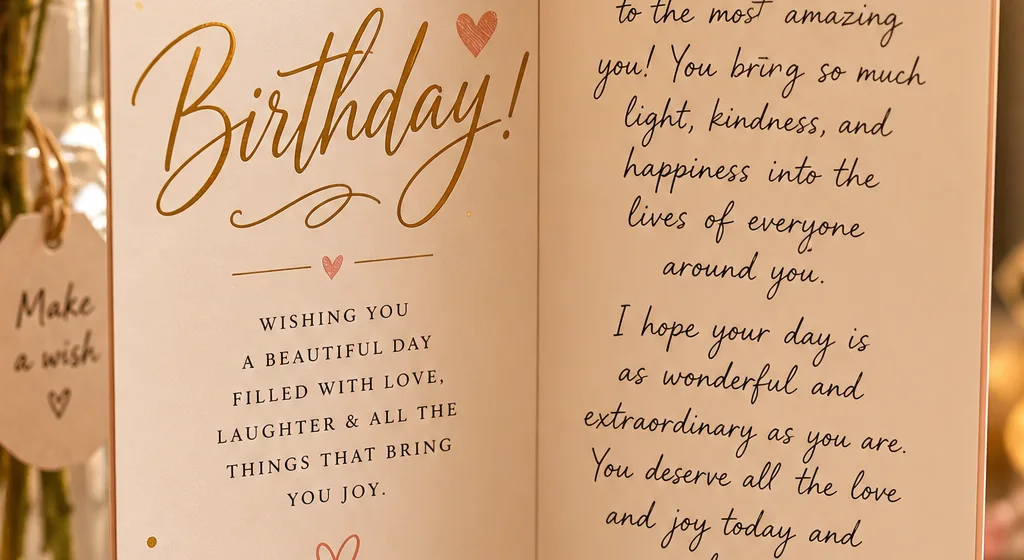 Birthday!
WISHING YOU
A BEAUTIFUL DAY
FILLED WITH LOVE,
LAUGHTER & ALL THE
THINGS THAT BRING
YOU JOY.
to the most amazing
you! You bring so much
light, kindness, and
happiness into the
lives of everyone
around you.
I hope your day is
as wonderful and
extraordinary as you are.
You deserve all the love
and joy today and
Make
a wish